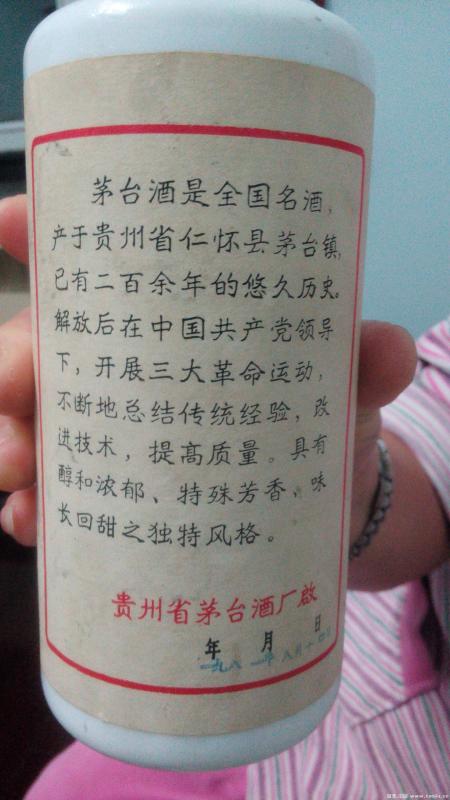 茅台酒是全国名酒,
产于贵州省仁怀县茅台镇,
已有二百余年的悠久历史。
解放后在中国共产党领导
下,开展三大革命运动,
不断地总结传统经验,改
进技术,提高质量。具有
醇和浓郁、特殊芳香、味
长回甜之独特风格。
贵州省茅台酒厂啟
年 月 日
一九八一年八月十四日